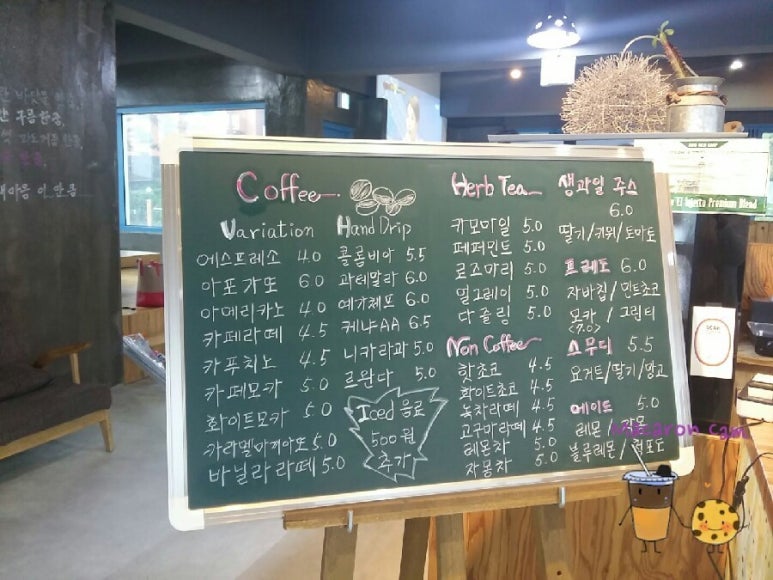 Coffee
Variation
에스프레소 4.0
아포가또 6.0
아메리카노 4.0
카페라떼 4.5
카푸치노 4.5
카페모카 5.0
화이트모카 5.0
카라멜마끼아또 5.0
바닐라라떼 5.0
Hand Drip
콜롬비아 5.5
과테말라 6.0
예가체프 6.0
케냐AA 6.5
니카라과 5.0
르완다 5.0
Iced 음료
500원
추가
Herb Tea
카모마일 5.0
페퍼민트 5.0
로즈마리 5.0
얼그레이 5.0
다즐링 5.0
Non Coffee
핫초코 4.5
화이트초코 4.5
녹차라떼 4.5
고구마라떼 4.5
레몬차 5.0
자몽차 5.0
생과일 주스
6.0
딸기/키위/토마토
프레도 6.0
자바칩/민트초코
모카/그린티
(7.0)
스무디 5.5
요거트/딸기/망고
에이드 5.0
레몬/자몽
블루레몬/청포도
El Injerto Premium Blend